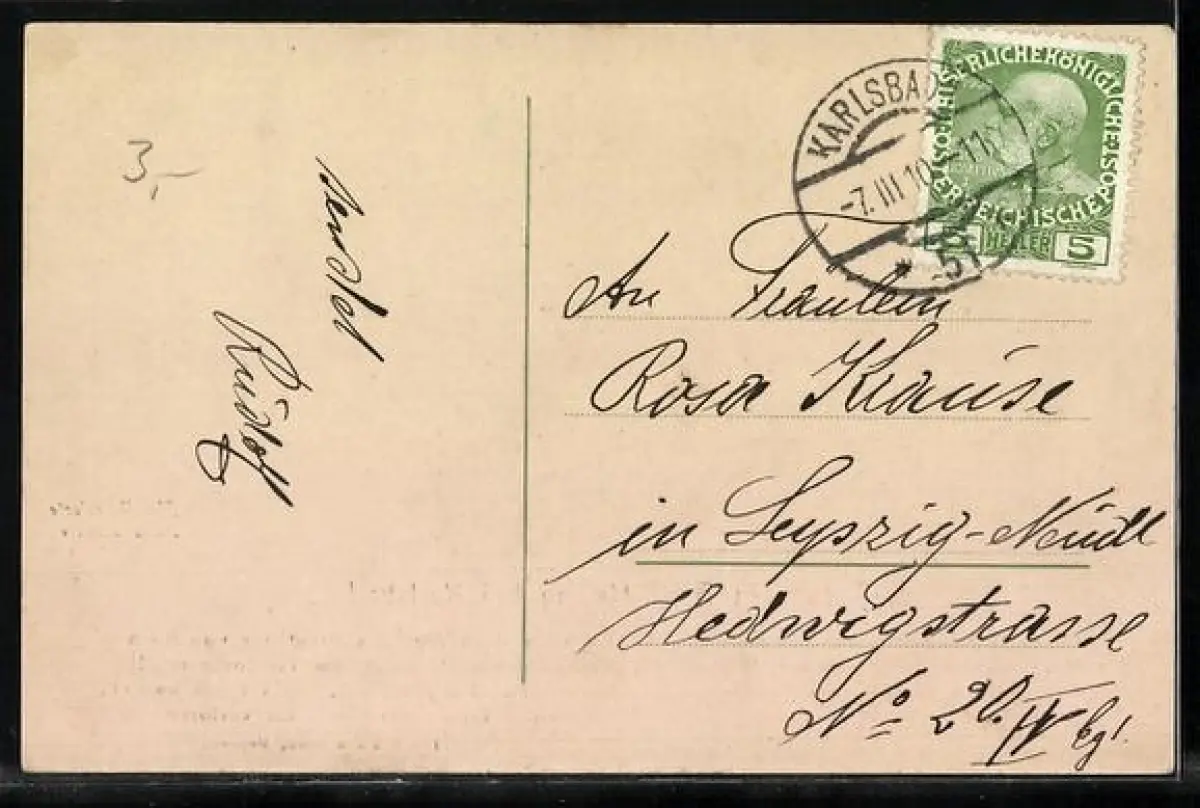 3,-
sendet
Rudolf
KARLSBAD
-7.III.10
KAISERLICHEKÖNIGLICHE ÖSTERREICHISCHE POST
HELLER 5
An Fräulein
Rosa Krause
in Leypzig-Neudl
Hedwigstrasse
No 20. IV